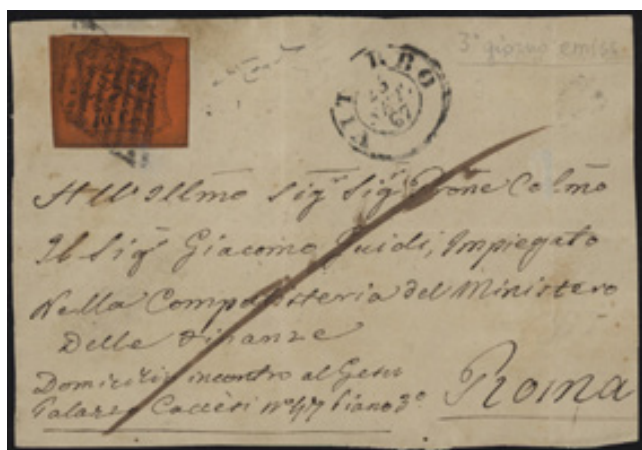 3° giorno emiss.
VITERBO
67
All'Illmo Sigr Sigr Prone Colmo
Il Sigr Giacomo Guidi, Impiegato
Nella Computisteria del Ministero
Delle Finanze
Domicilio incontro al Gesu
Palazzo nº 47 Piano 3º
Roma